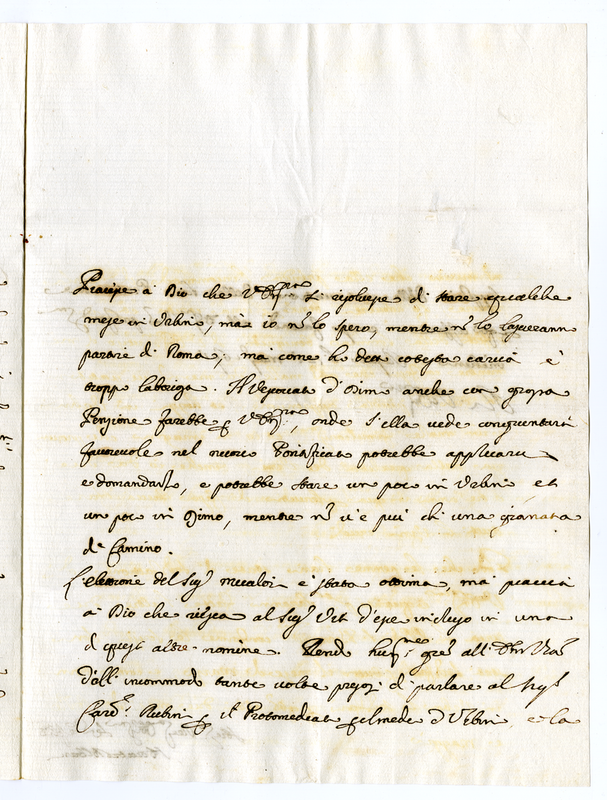 Piacesse à Dio che V. S. Ill.ma si risolvesse di stare qualche
mese in Urbino, mà io nõ lo spero, mentre nõ lo lasceranno
partire di Roma, mà come hò detto cotesta carica è
troppo laboriosa. Il Vescovato d'Osimo anche con grossa
Penzione farebbe p V. S. Ill.ma, onde s'ella vede congiuntura
favorevole nel nuovo Pontificato potrebbe applicarvi
e domandarlo, e potrebbe stare un poco in Urbino et
un poco in Osimo, mentre nõ v'è più di una giornata
di Camino.
L'elezione del Sig.r Micaloi è stata ottima, mà piaccia
à Dio che riesca al Sig.r d'esse incluso in una
di queste altre nomine. Rendo hum.me gre all'
dell'incommodo tante volte presosi di parlare al Sig.r
Card.e Rubini p il Protomedicato d'Urbino e la